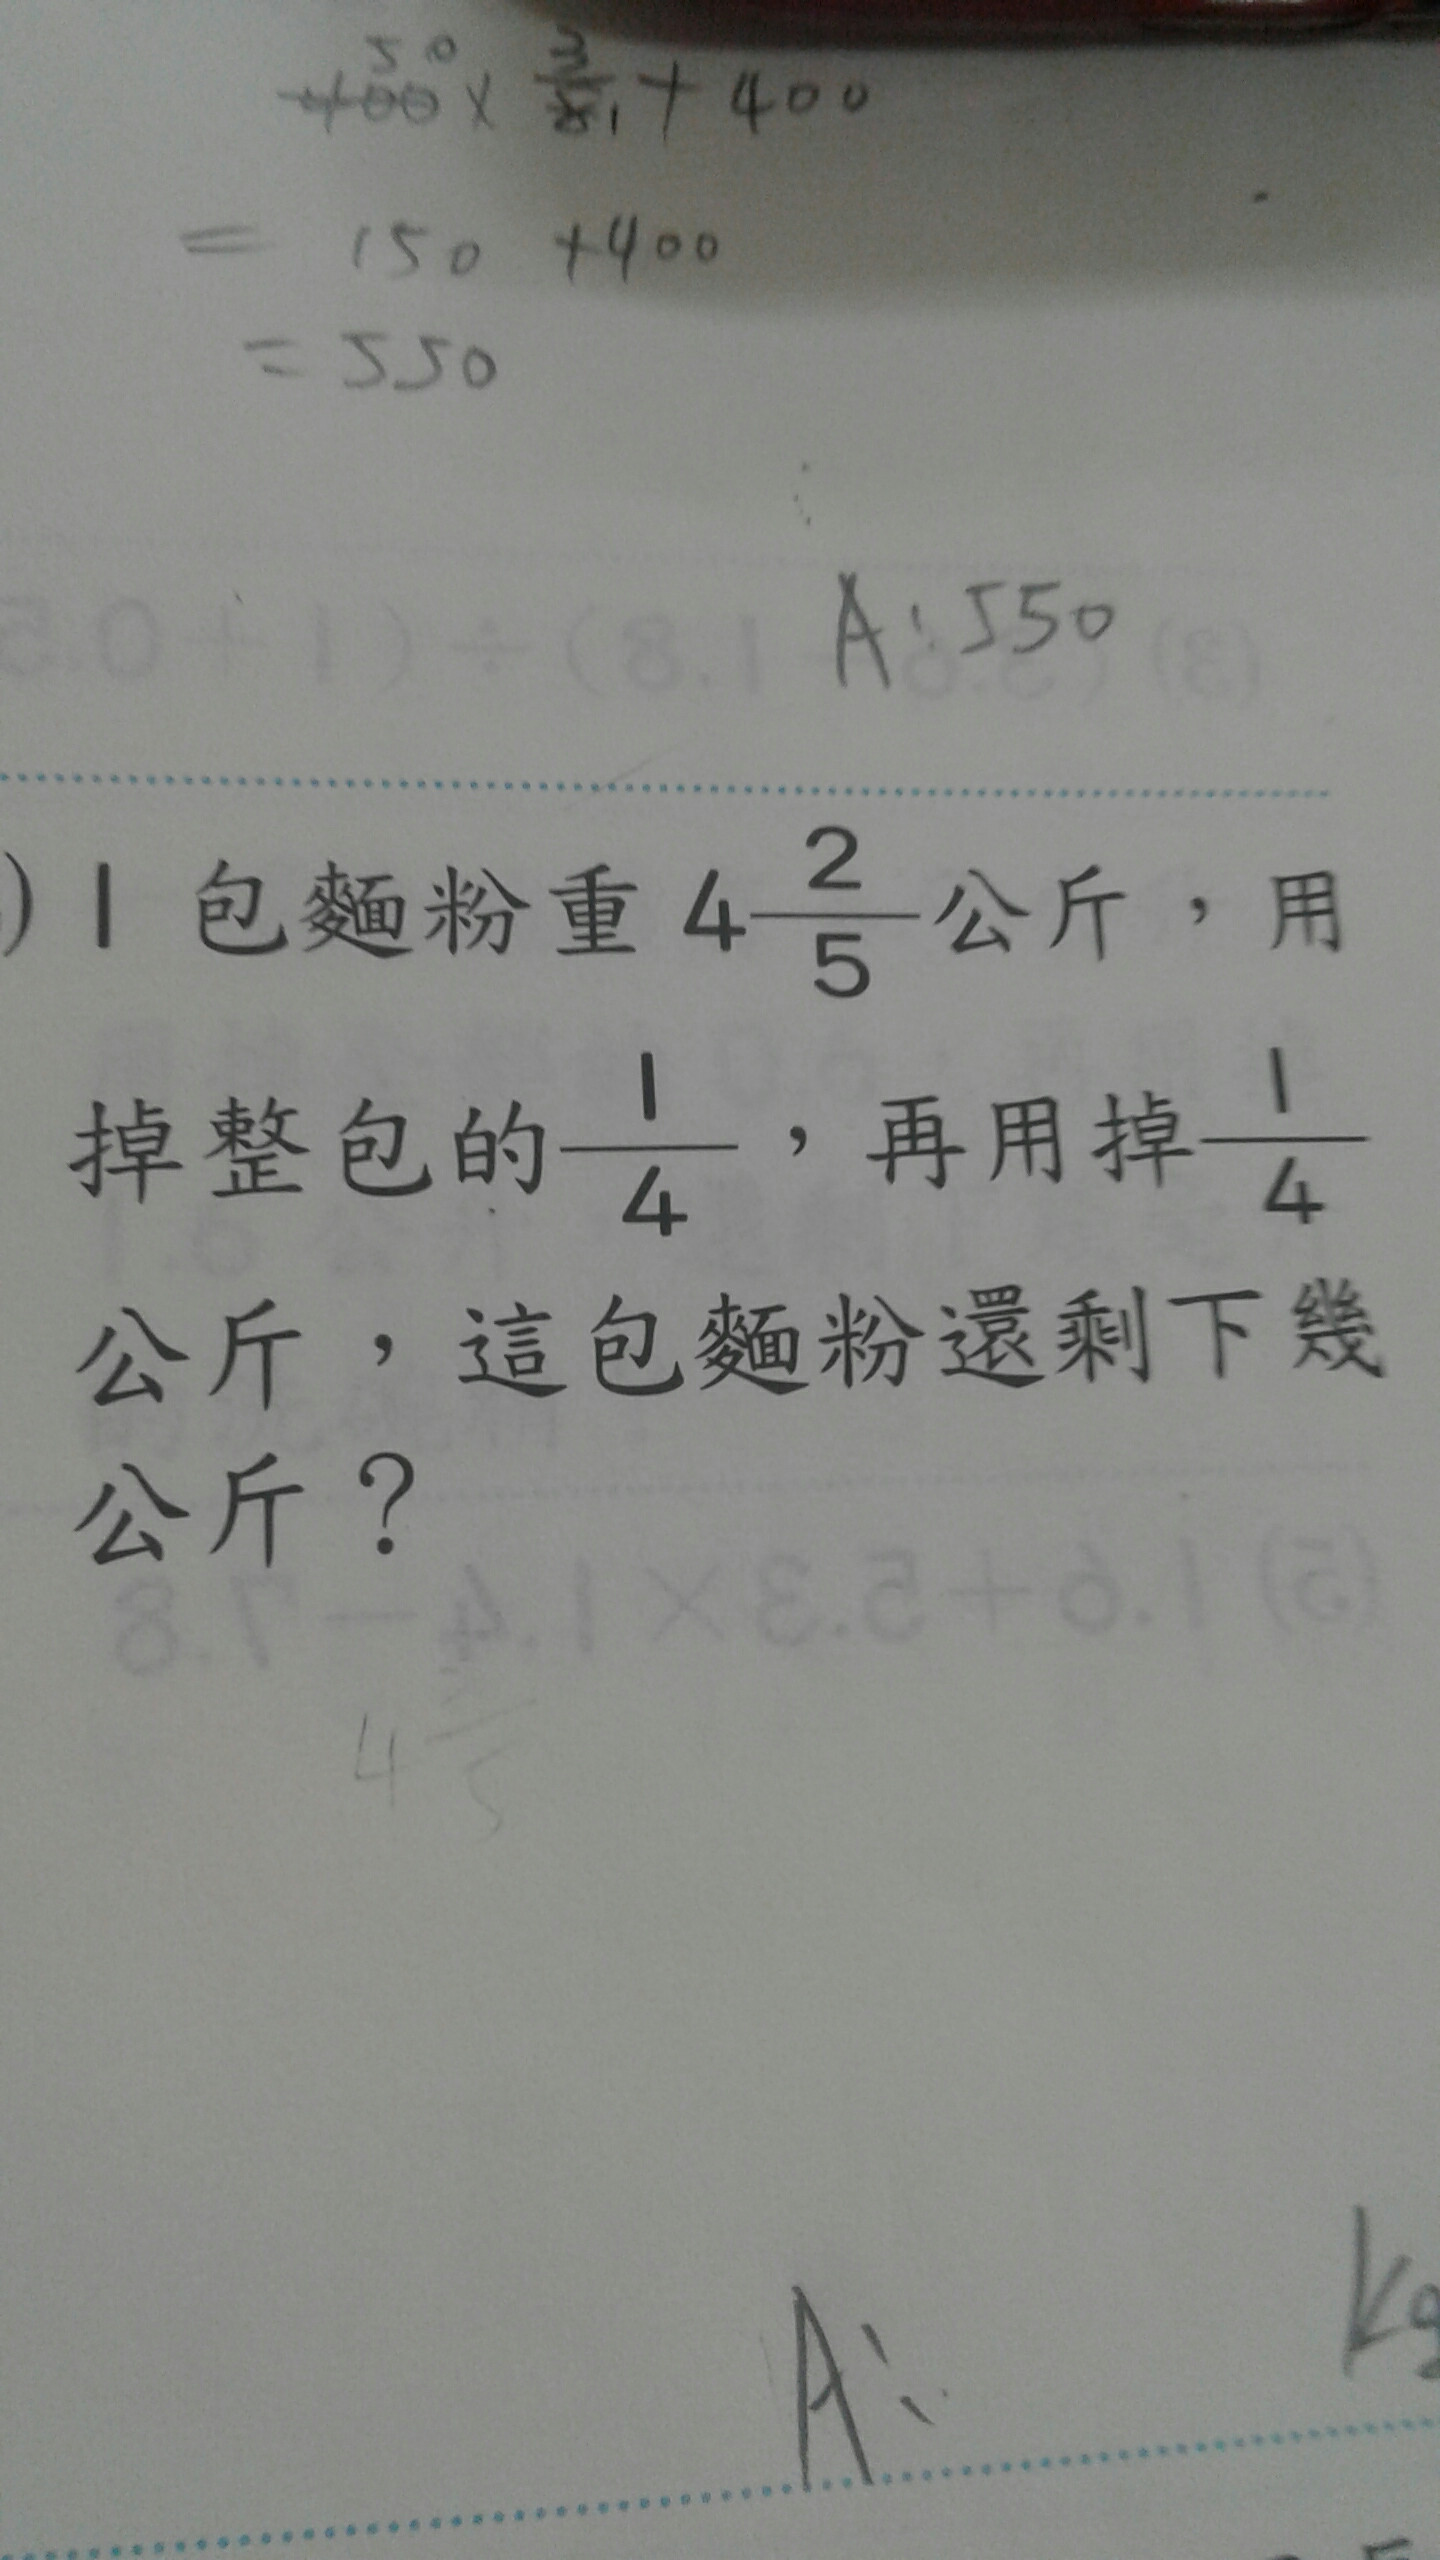 50 3
400 × 8 1 + 400
= 150 + 400
= 550
A: 550
) 1 包麵粉重 4 2/5 公斤,用
掉整包的 1/4 ,再用掉 1/4
公斤,這包麵粉還剩下幾
公斤?
4 5
A: kg